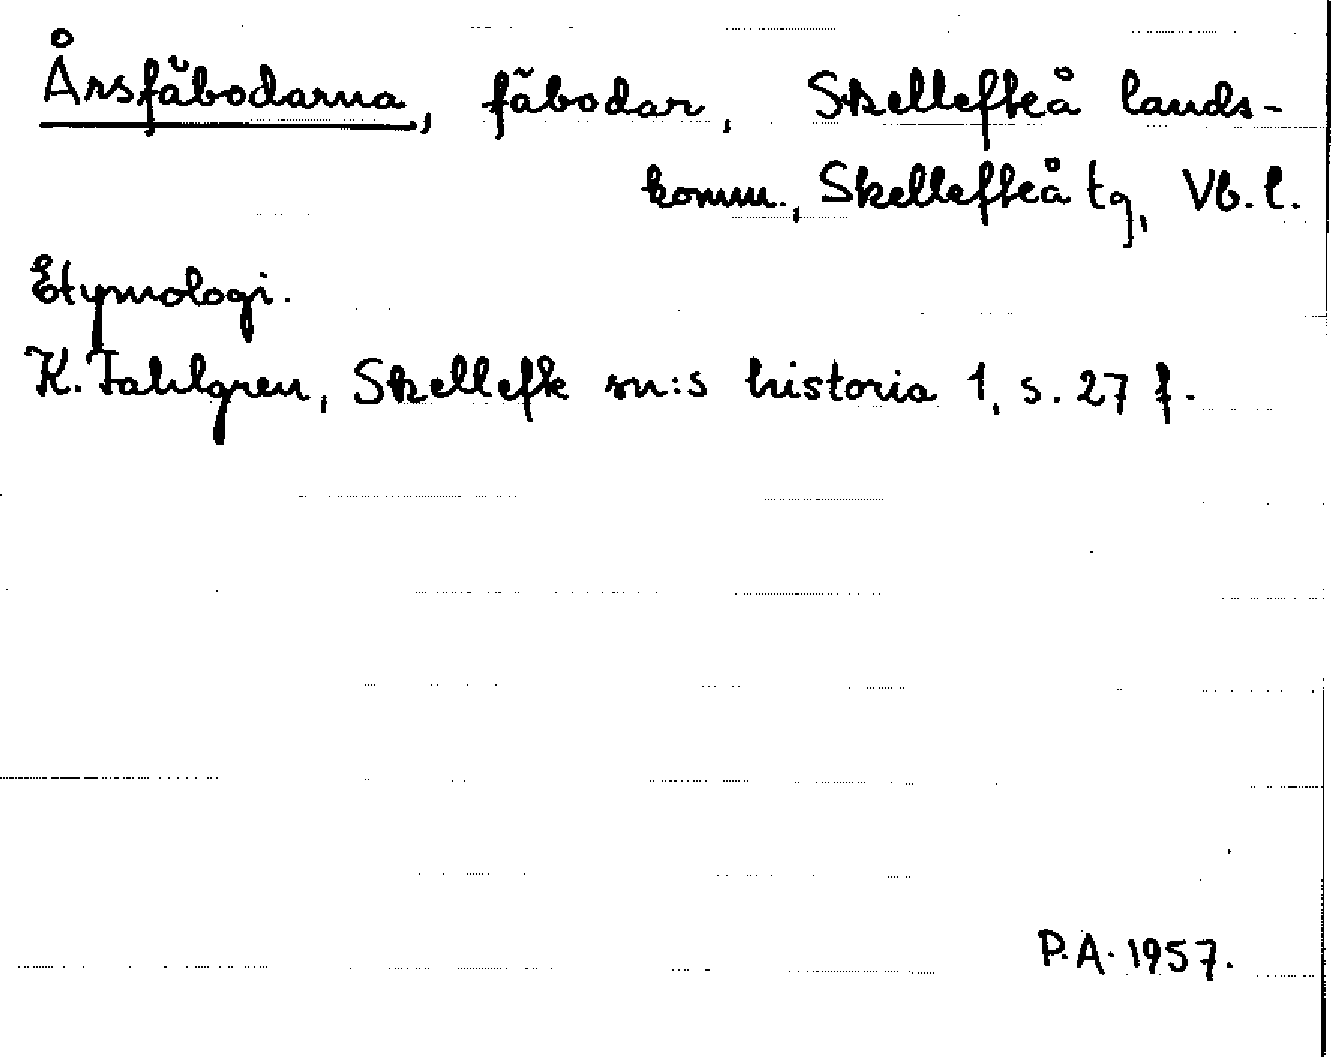 Årsfäbodarna, fäbodar, Skellefteå lands-
komm., Skellefteå tg, Vb.l.
Etymologi.
K. Fahlgren, Skellefte sn:s historia 1, s. 27 f.
P.A. 1957.